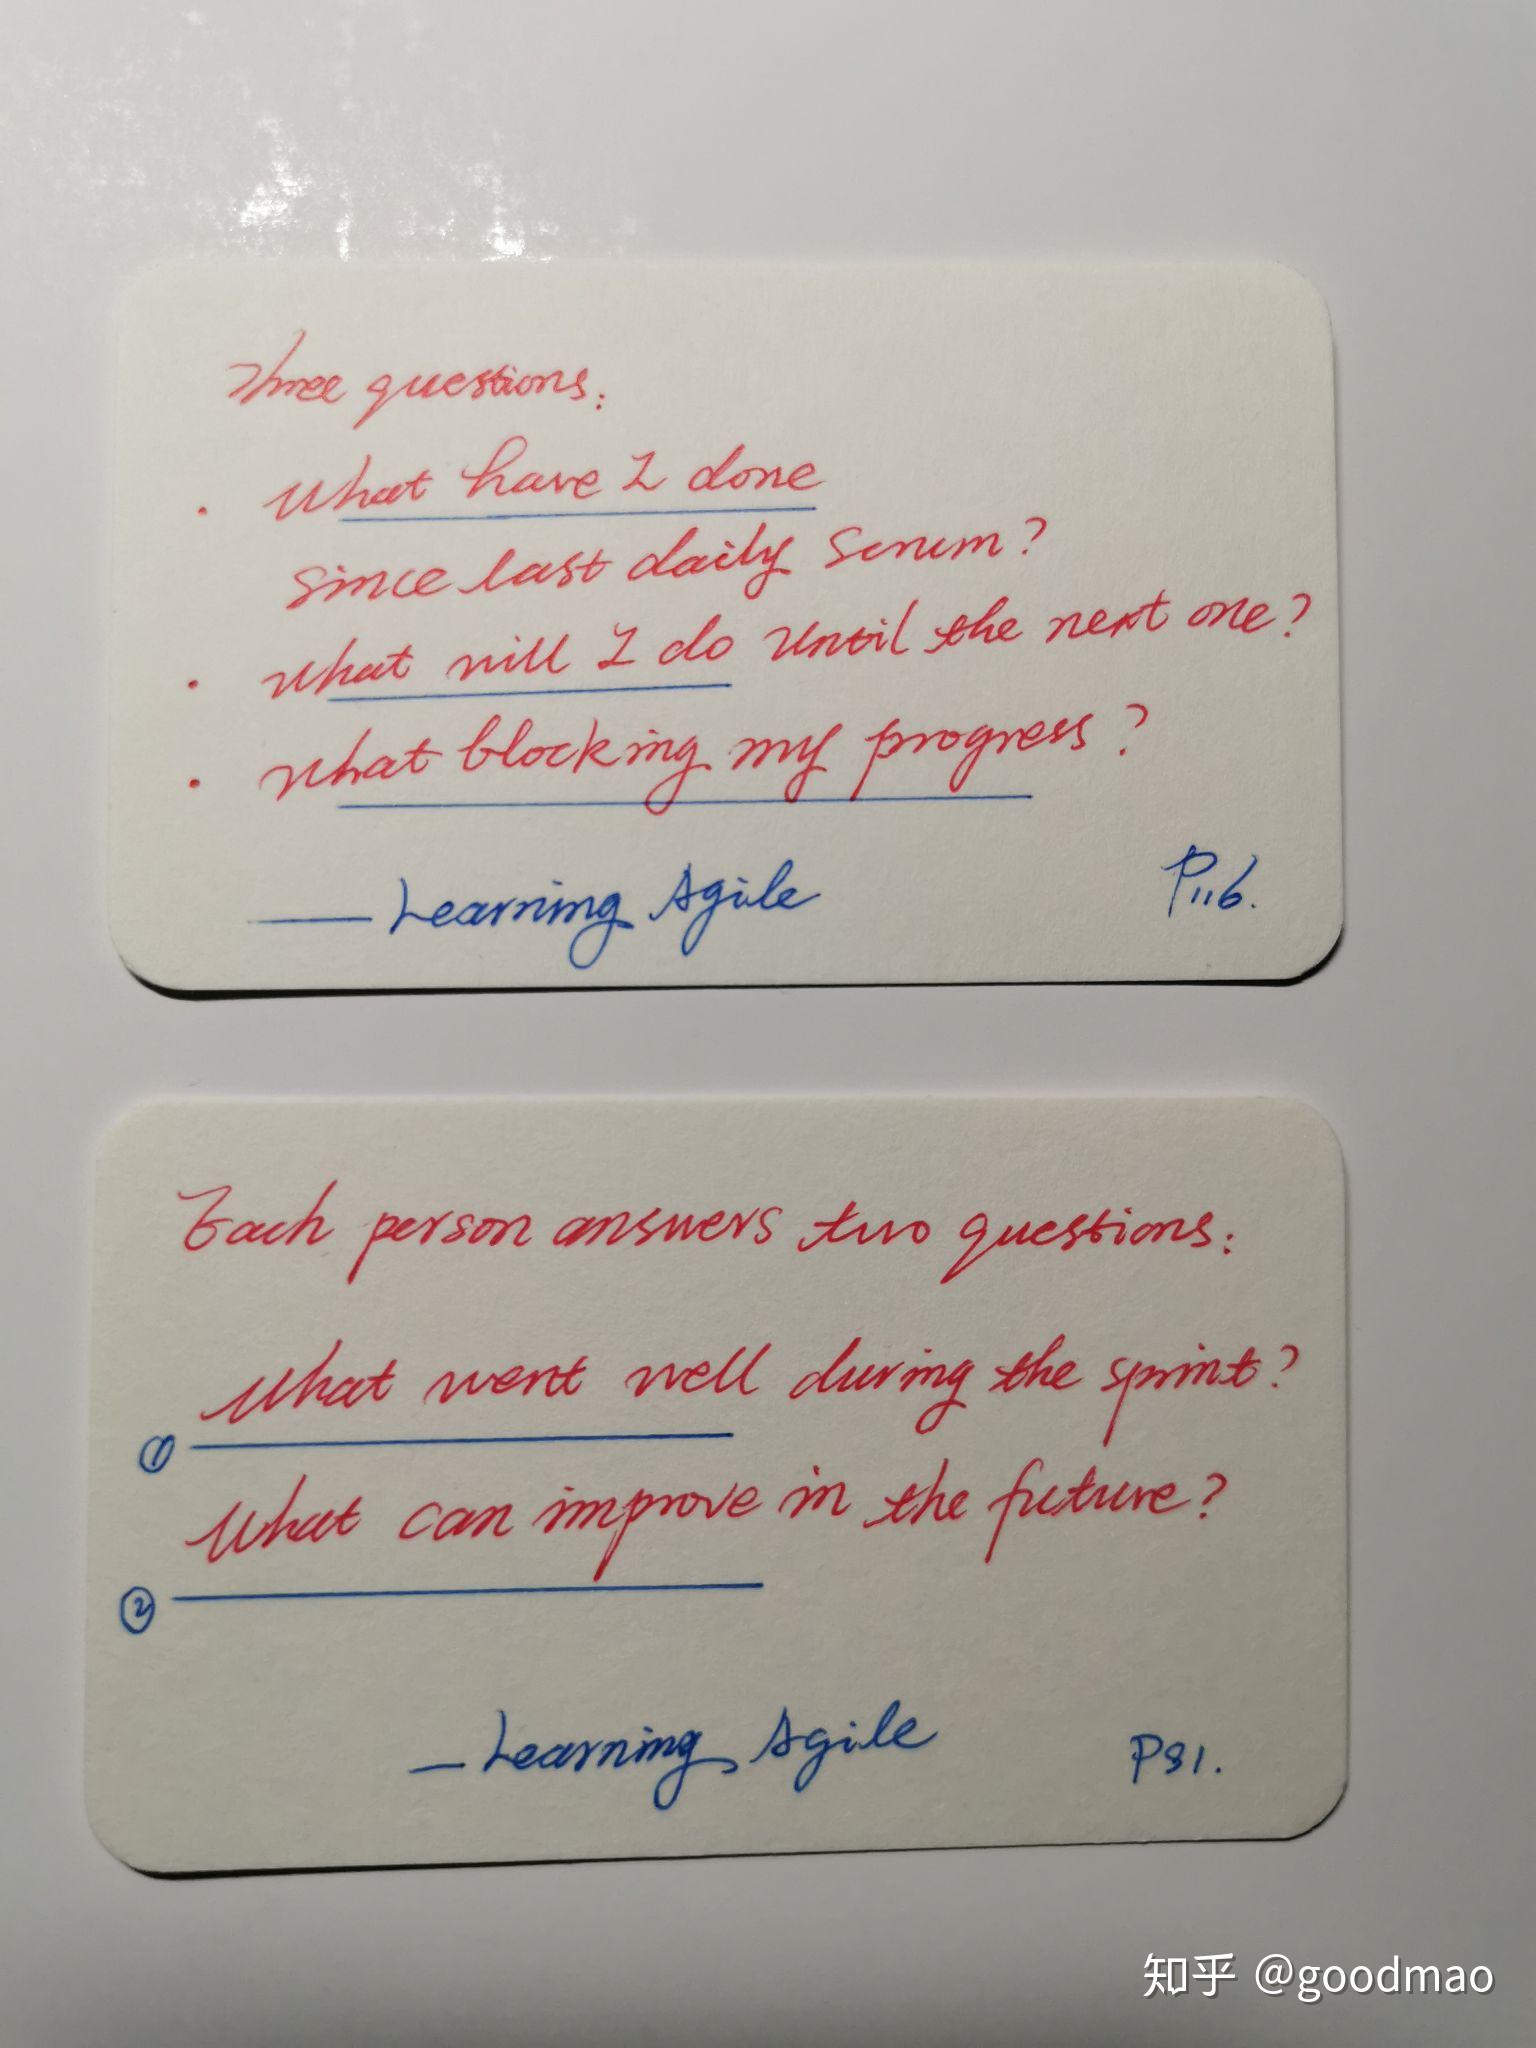 Three questions:
· What have I done
since last daily Scrum?
· What will I do until the next one?
· What blocking my progress?
—— Learning Agile P116.
Each person answers two questions:
What went well during the sprint?
①
What can improve in the future?
②
— Learning Agile P81.
知乎 @goodmao